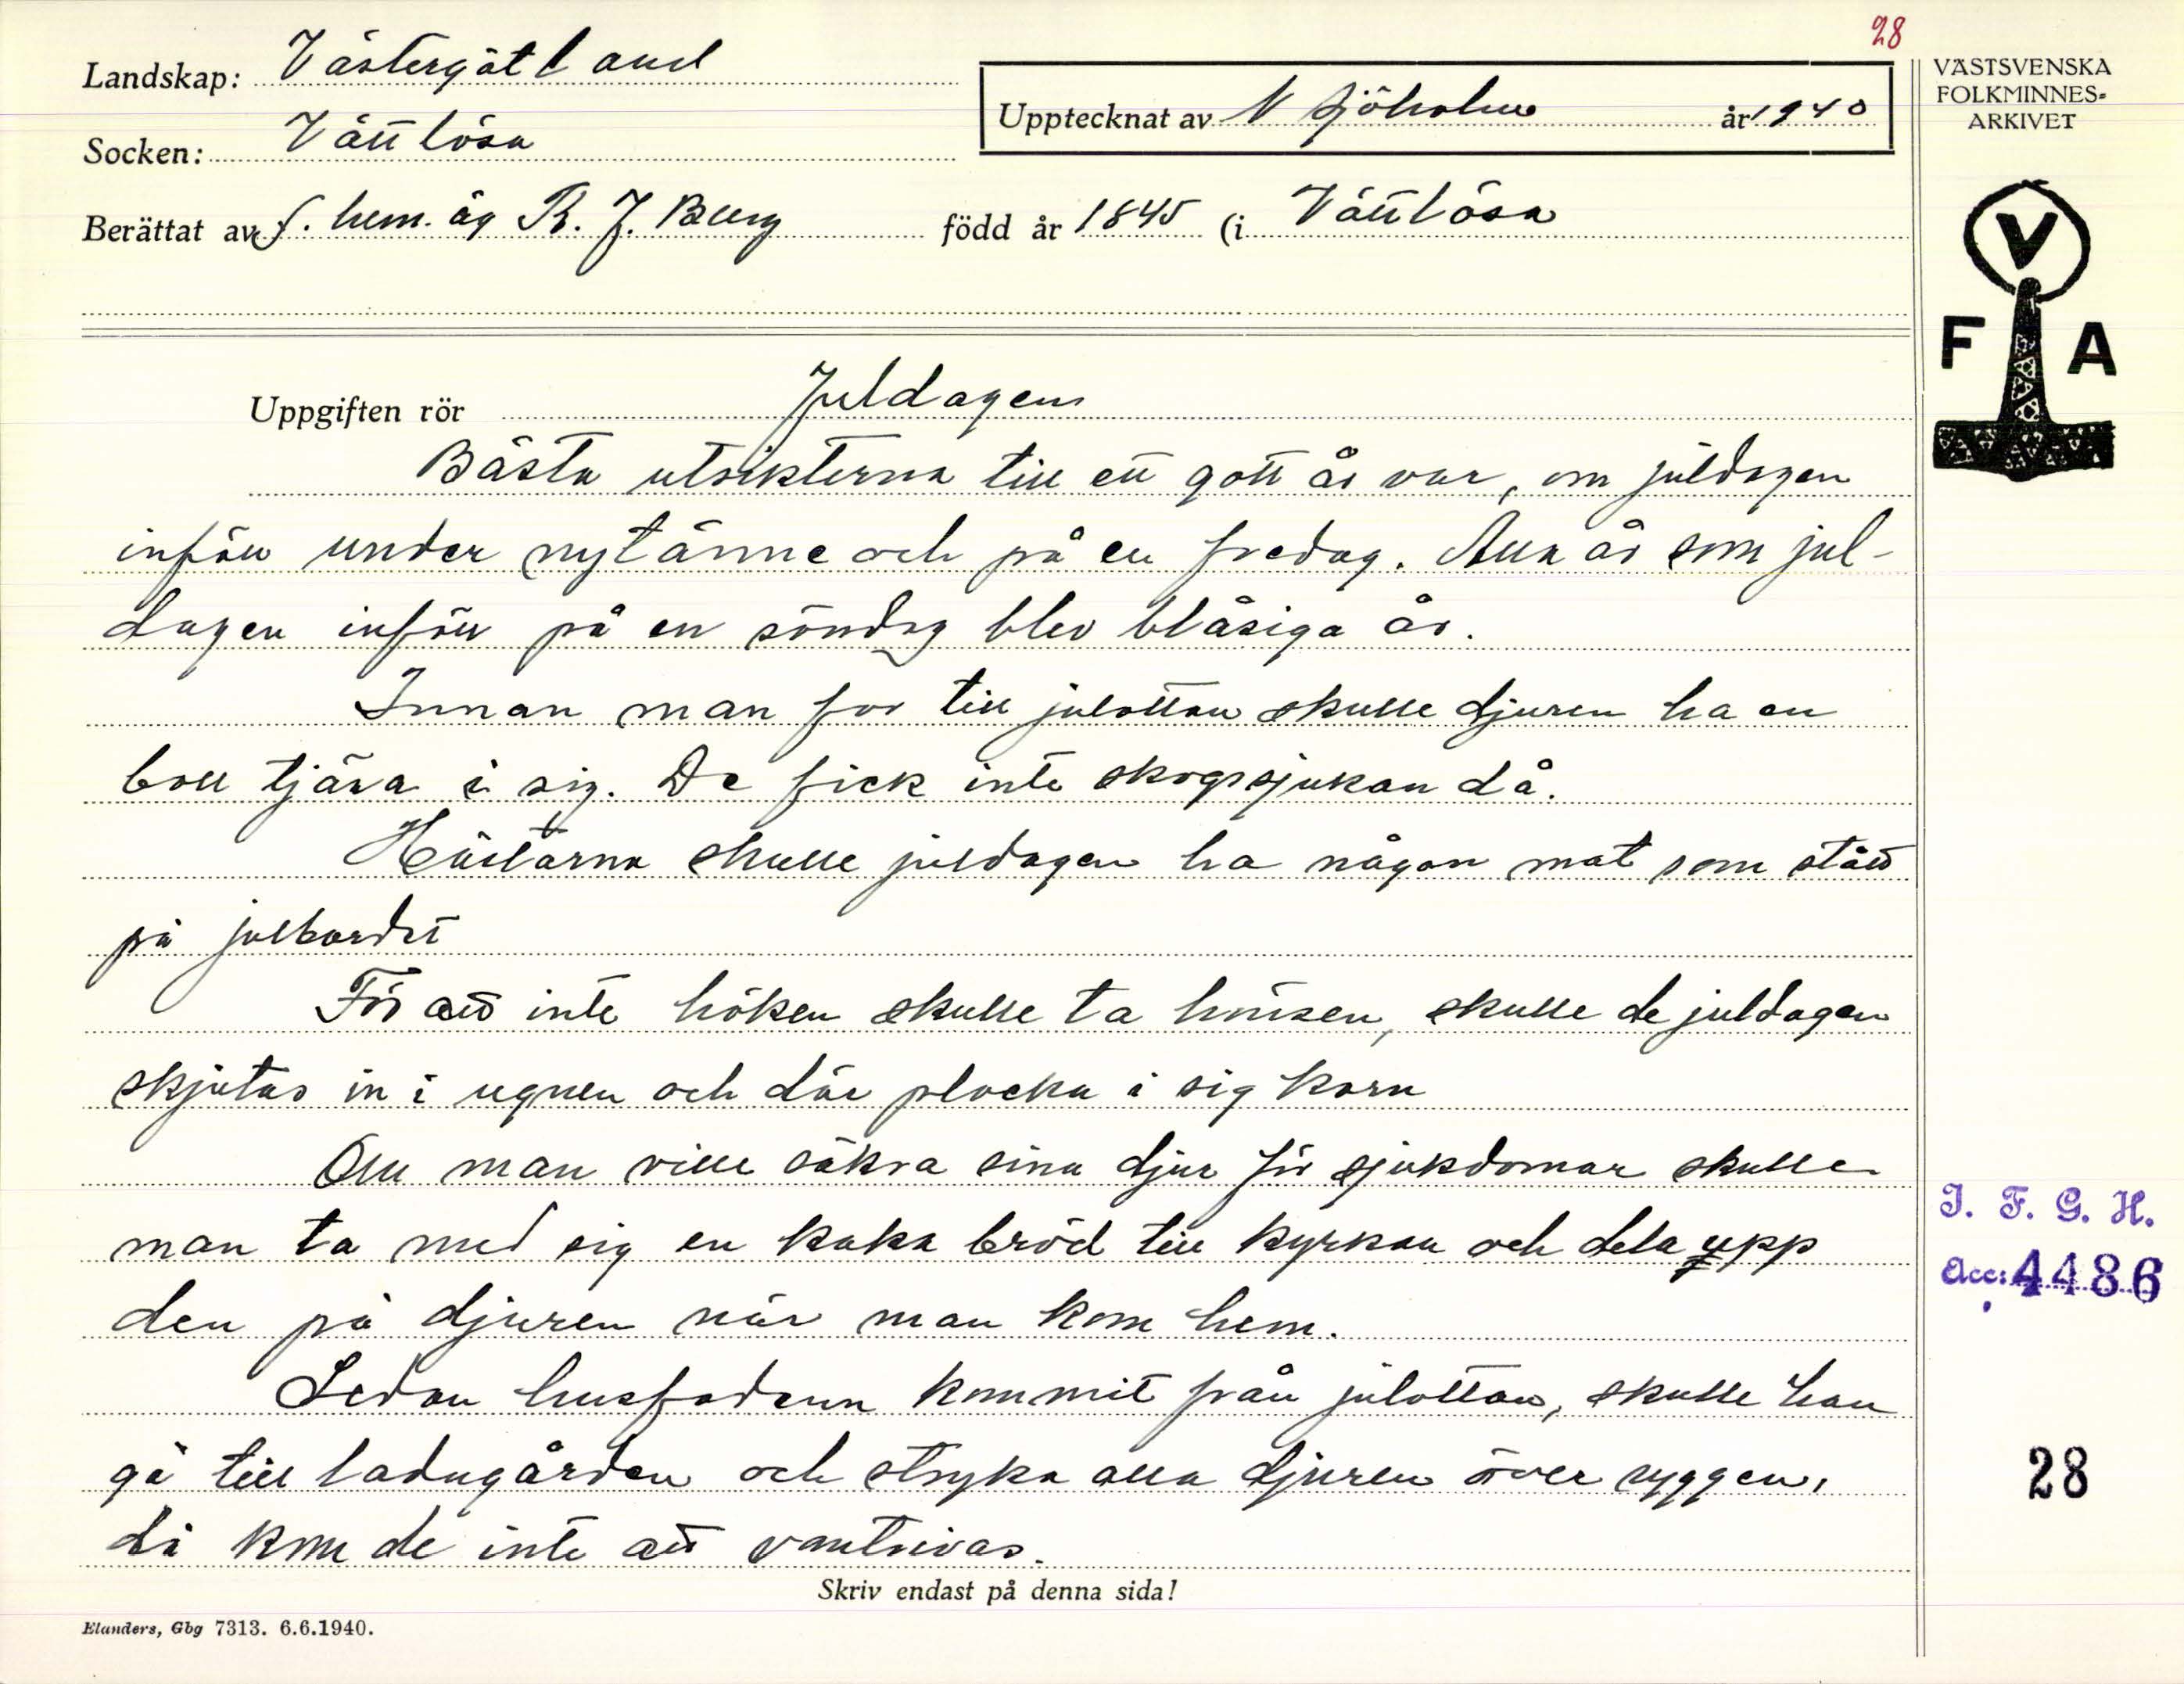 28
Landskap: Västergötland
VÄSTSVENSKA
FOLKMINNES=
ARKIVET
Upptecknat av N Sjöholm år 1940
Socken: Vättlösa
Berättat av f. hem. äg R. J. Berg född år 1845 (i Vättlösa
V
F A
Uppgiften rör Juldagen
Bästa utsikterna till ett gott år var, om juldagen
inföll under nytänne och på en fredag. Alla år som jul-
dagen inföll på en söndag blev blåsiga år.
Innan man for till julottan skulle djuren ha en
boll tjära i sig. De fick inte skogssjukan då.
Hästarna skulle juldagen ha någon mat som stått
på julbordet
För att inte höken skulle ta hönsen, skulle de juldagen
skjutas in i ugnen och där plocka i sig korn
Om man ville säkra sina djur för sjukdomar skulle
man ta med sig en kaka bröd till kyrkan och dela upp
den på djuren när man kom hem.
Sedan husfadern kommit från julottan, skulle han
gå till ladugården och stryka alla djuren över ryggen,
då kom de inte att vantrivas.
J. F. G. H.
Acc: 4486
28
Skriv endast på denna sida!
Elanders, Gbg 7313. 6.6.1940.